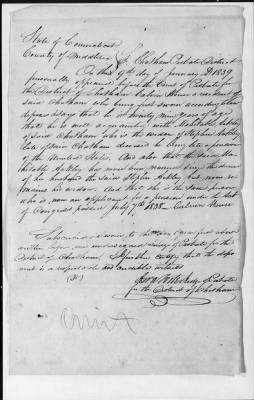 State of Connecticut
County of Middlesex } ss Chatham Probate District
On this 9th day of January AD 1839
personally appeared before the Court of Probate for
the District of Chatham Calvin House a resident of
said Chatham who being first sworn according to law
deposes & says that he is seventy nine years of age
that he is well acquainted with Mehitable Ackley
of said Chatham who is the widow of Stephen Ackley
late of said Chatham deceased he being late a pension
of the United States. And also that the said Me
hitable Ackley has never been married since the decease
of her husband the said Stephen Ackley but now re
mains his widow. And that she is the same person
who is now an applicant for a pension under the Act
of Congress passed July 7th 1838 Calvin House
Subscribed & sworn to the day & year first above
written before me undersigned Judge of Probate for the
District of Chatham, & I further certify that the depo
nent is a respectable and credible witness
Judge of Probate
for the District of Chatham